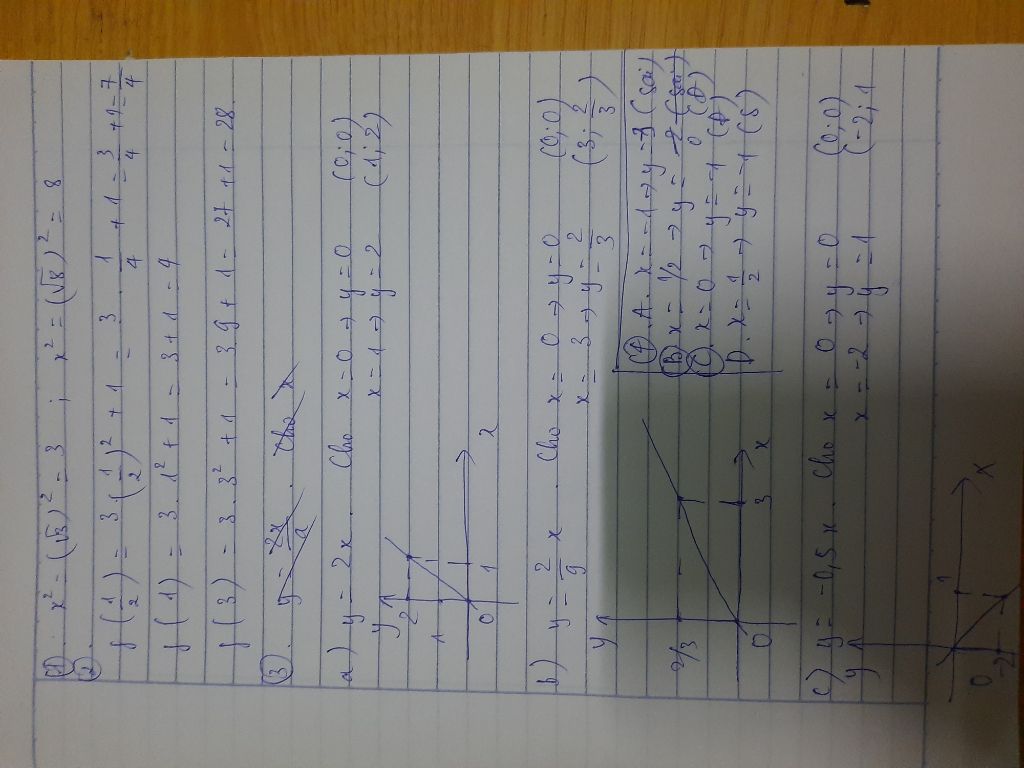 ① x² = (√3)² = 3 ; x² = (√8)² = 8
②
f(1/2) = 3(1/2)² + 1 = 3 . 1/4 + 1 = 3/4 + 1 = 7/4
f(1) = 3 . 1² + 1 = 3 + 1 = 4
f(3) = 3 . 3² + 1 = 3 . 9 + 1 = 27 + 1 = 28.
③
a) y = 2x . Cho x = 0 → y = 0 (0;0)
x = 1 → y = 2 (1;2)
y
2
1
0 1 x
b) y = 2/9 x . Cho x = 0 → y = 0 (0;0)
x = 3 → y = 2/3 (3; 2/3)
y
2/3
0 3 x
④ A. x = -1 → y = 3 (sai)
B. x = 1/2 → y = 0 (Đ)
C. x = 0 → y = 1 (Đ)
D. x = 1/2 → y = -1 (S)
c) y = -0,5x . Cho x = 0 → y = 0 (0;0)
x = -2 → y = 1 (-2;1)
y
0 1 x
-2